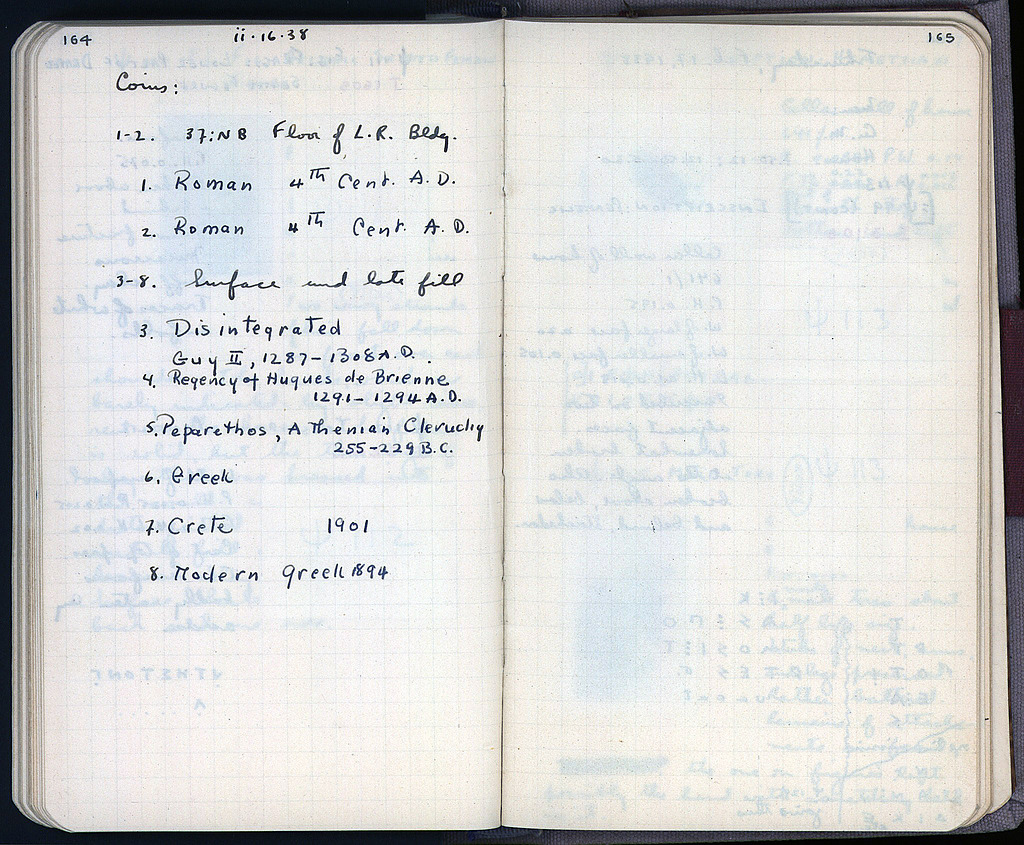 164
ii·16·38
Coins:
1-2. 37:NB Floor of L.R. Bldg.
1. Roman 4TH Cent. A.D.
2. Roman 4TH Cent. A.D.
3-8. Surface and late fill
3. Disintegrated
Guy II, 1287-1308 A.D.
4. Regency of Hugues de Brienne
1291-1294 A.D.
5. Peparethos, Athenian Cleruchy
255-229 B.C.
6. Greek
7. Crete 1901
8. Modern Greek 1894
165